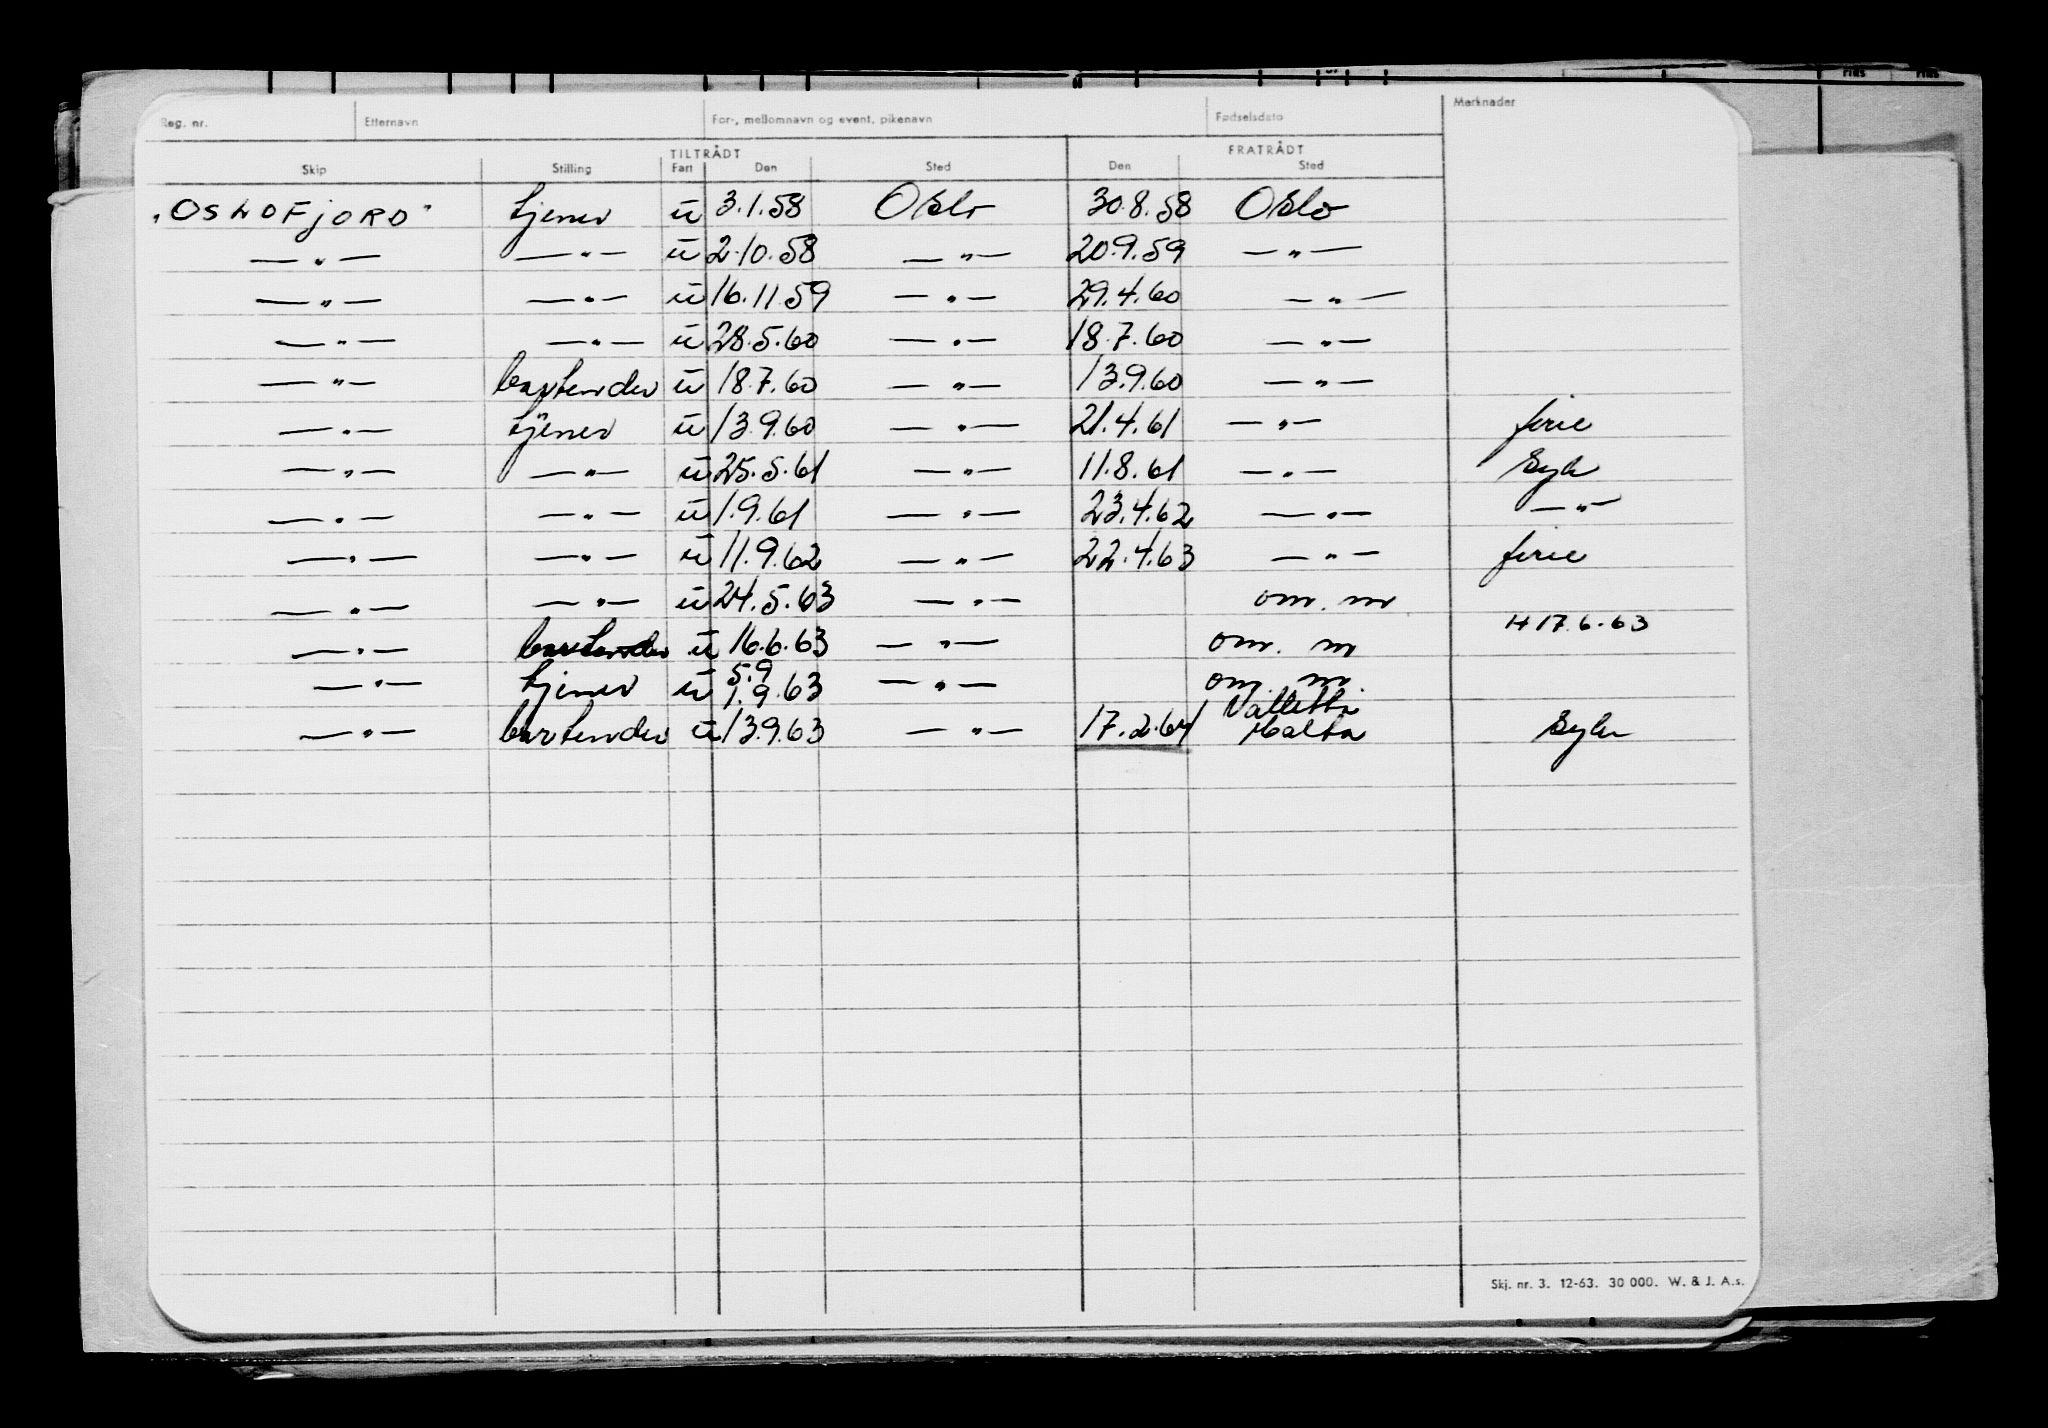 Reg. nr. Etternavn For-, mellomnavn og event. pikenavn Fødselsdato Merknader
TILTRÅDT FRATRÅDT
Skip Stilling Fart Den Sted Den Sted
"OSLOFJORD" tjener u 3.1.58 Oslo 30.8.58 Oslo
—"— —"— u 2.10.58 —"— 20.9.59 —"—
—"— —"— u 16.11.59 —"— 29.4.60 —"—
—"— —"— u 28.5.60 —"— 18.7.60 —"—
—"— bartender u 18.7.60 —"— 13.9.60 —"—
—"— tjener u 13.9.60 —"— 21.4.61 —"— ferie
—"— —"— u 25.5.61 —"— 11.8.61 —"— Syk
—"— —"— u 1.9.61 —"— 23.4.62 —"— —"—
—"— —"— u 11.9.62 —"— 22.4.63 —"— ferie
—"— —"— u 24.5.63 —"— om. m
—"— bartender u 16.6.63 —"— om. m H 17.6.63
—"— tjener u 5.9 1.9.63 —"— om. m.
—"— bartender u 13.9.63 —"— 17.2.64 Valletta Malta Syk
Skj. nr. 3. 12-63. 30 000. W. & J. A.s.